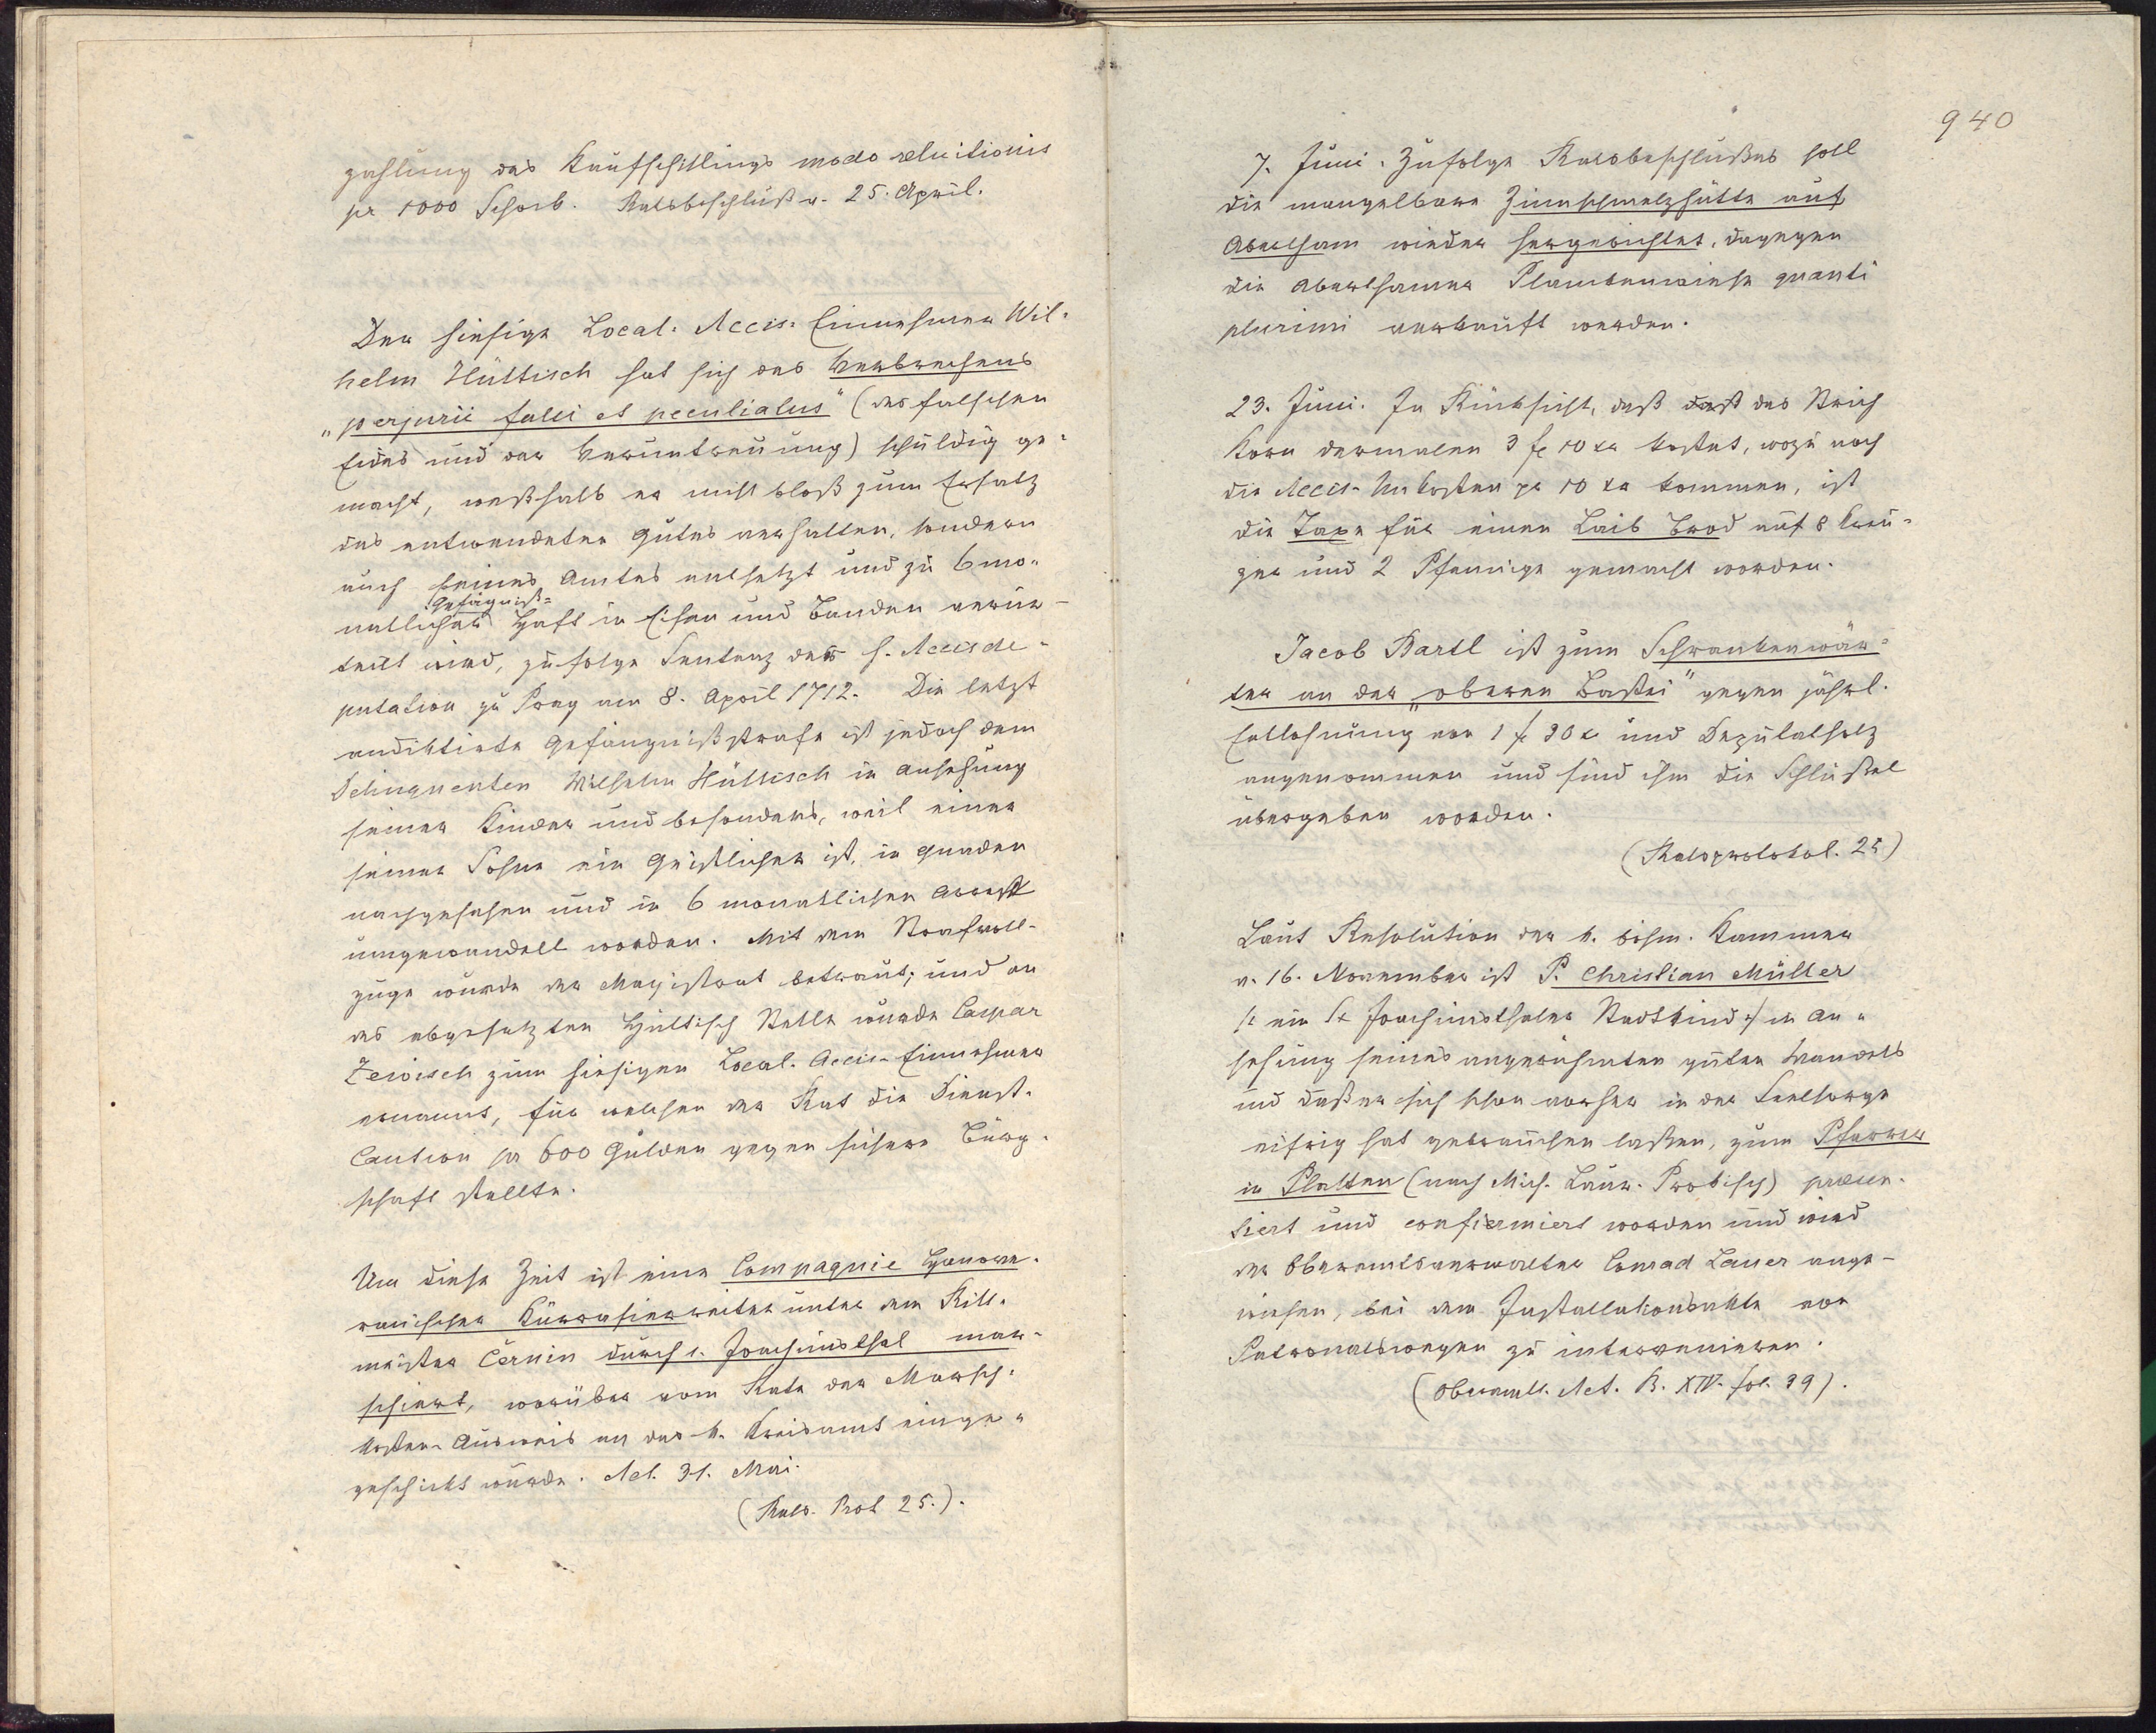 zahlung des Kaufschillings modo reluitionis
pr 1000 Schock. Ratsbeschluß v. 25. April.
Der hiesige Local-Accis-Einnehmer Wil-
helm Hüttisch hat sich des Verbrechens
„perjurii falsi et peculiatus" (des falschen
Eides und der Veruntreuung) schuldig ge-
macht, weßhalb er nicht bloß zum Ersatz
des entwendeten Gutes verhalten, sondern
auch seines Amtes entsetzt und zu 6mo-
natlicher Gefängniß- Haft in Eisen und Banden verur-
teilt wird, zufolge Sentenz der h. Accisde-
putation zu Prag vom 8. April 1712. Die letzt
andiktierte Gefängnißstrafe ist jedoch dem
Delinquenten Wilhelm Hüttisch in Ansehung
seiner Kinder und besonders, weil einer
seiner Söhne ein Geistlicher ist, in Gnaden
nachgesehen und in 6 monatlichen Arrest
umgewandelt worden. Mit dem Strafvoll-
zuge wurde der Magistrat betraut; und an
des abgesetzten Hüttisch Stelle wurde Caspar
Zewisch zum hiesigen Local-Accis-Einnehmer
ernannt, für welchen der Rat die Dienst-
Caution pr 600 Gulden gegen sichere Bürg-
schaft stellte.
Um diese Zeit ist eine Compagnie Hanove-
ranischer Kürrasierreiter unter dem Ritt-
meister Černin durch s. Joachimsthal mar-
schiert, worüber vom Rate der Marsch-
kosten-Ausweis an das k. Kreisamt einge-
geschickt wurde. Act. 31. Mai.
(Rats. Prot 25.).
940
7. Juni. Zufolge Ratsbeschlußes soll
die mangelbare Zinnschmelzhütte auf
Abertham wieder hergerichtet, dagegen
die Aberthamer Planken­wiese quanti
plurimi verkauft werden.
23. Juni. In Rücksicht, daß daß das Strich
Korn dermalen 3 f 10 xr kostet, wozu noch
die Accis-Unkosten pr 10 xr kommen, ist
die Taxe für einen Laib Brod auf 8 Kreu-
zer und 2 Pfennige gemacht worden.
Jacob Bartl ist zum Schrankenwär-
ter an der „oberen Bastei" gegen jährl.
Entlohnung von 1 f 30 x und Deputatholz
angenommen und sind ihm die Schlüßel
übergeben worden.
(Ratsprotokol. 25)
Laut Resolution der k. böhm. Kammer
v. 16. November ist P. Christian Müller
/: ein St Joachimsthaler Stadtkind :/ in An-
sehung seines angerühmten guten Wandels
und daß er sich schon vorher in der Seelsorge
eifrig hat gebrauchen laßen, zum Pfarrer
in Platten (nach Mich. Laur. Probisch) præsen-
tiert und confirmiert worden und wird
der Oberamtsverwalter Conrad Lauer ange-
wiesen, bei dem Installationsakte von
Patronatswegen zu intervenieren.
(Oberamtl. Act. B. XIV. fol. 39).